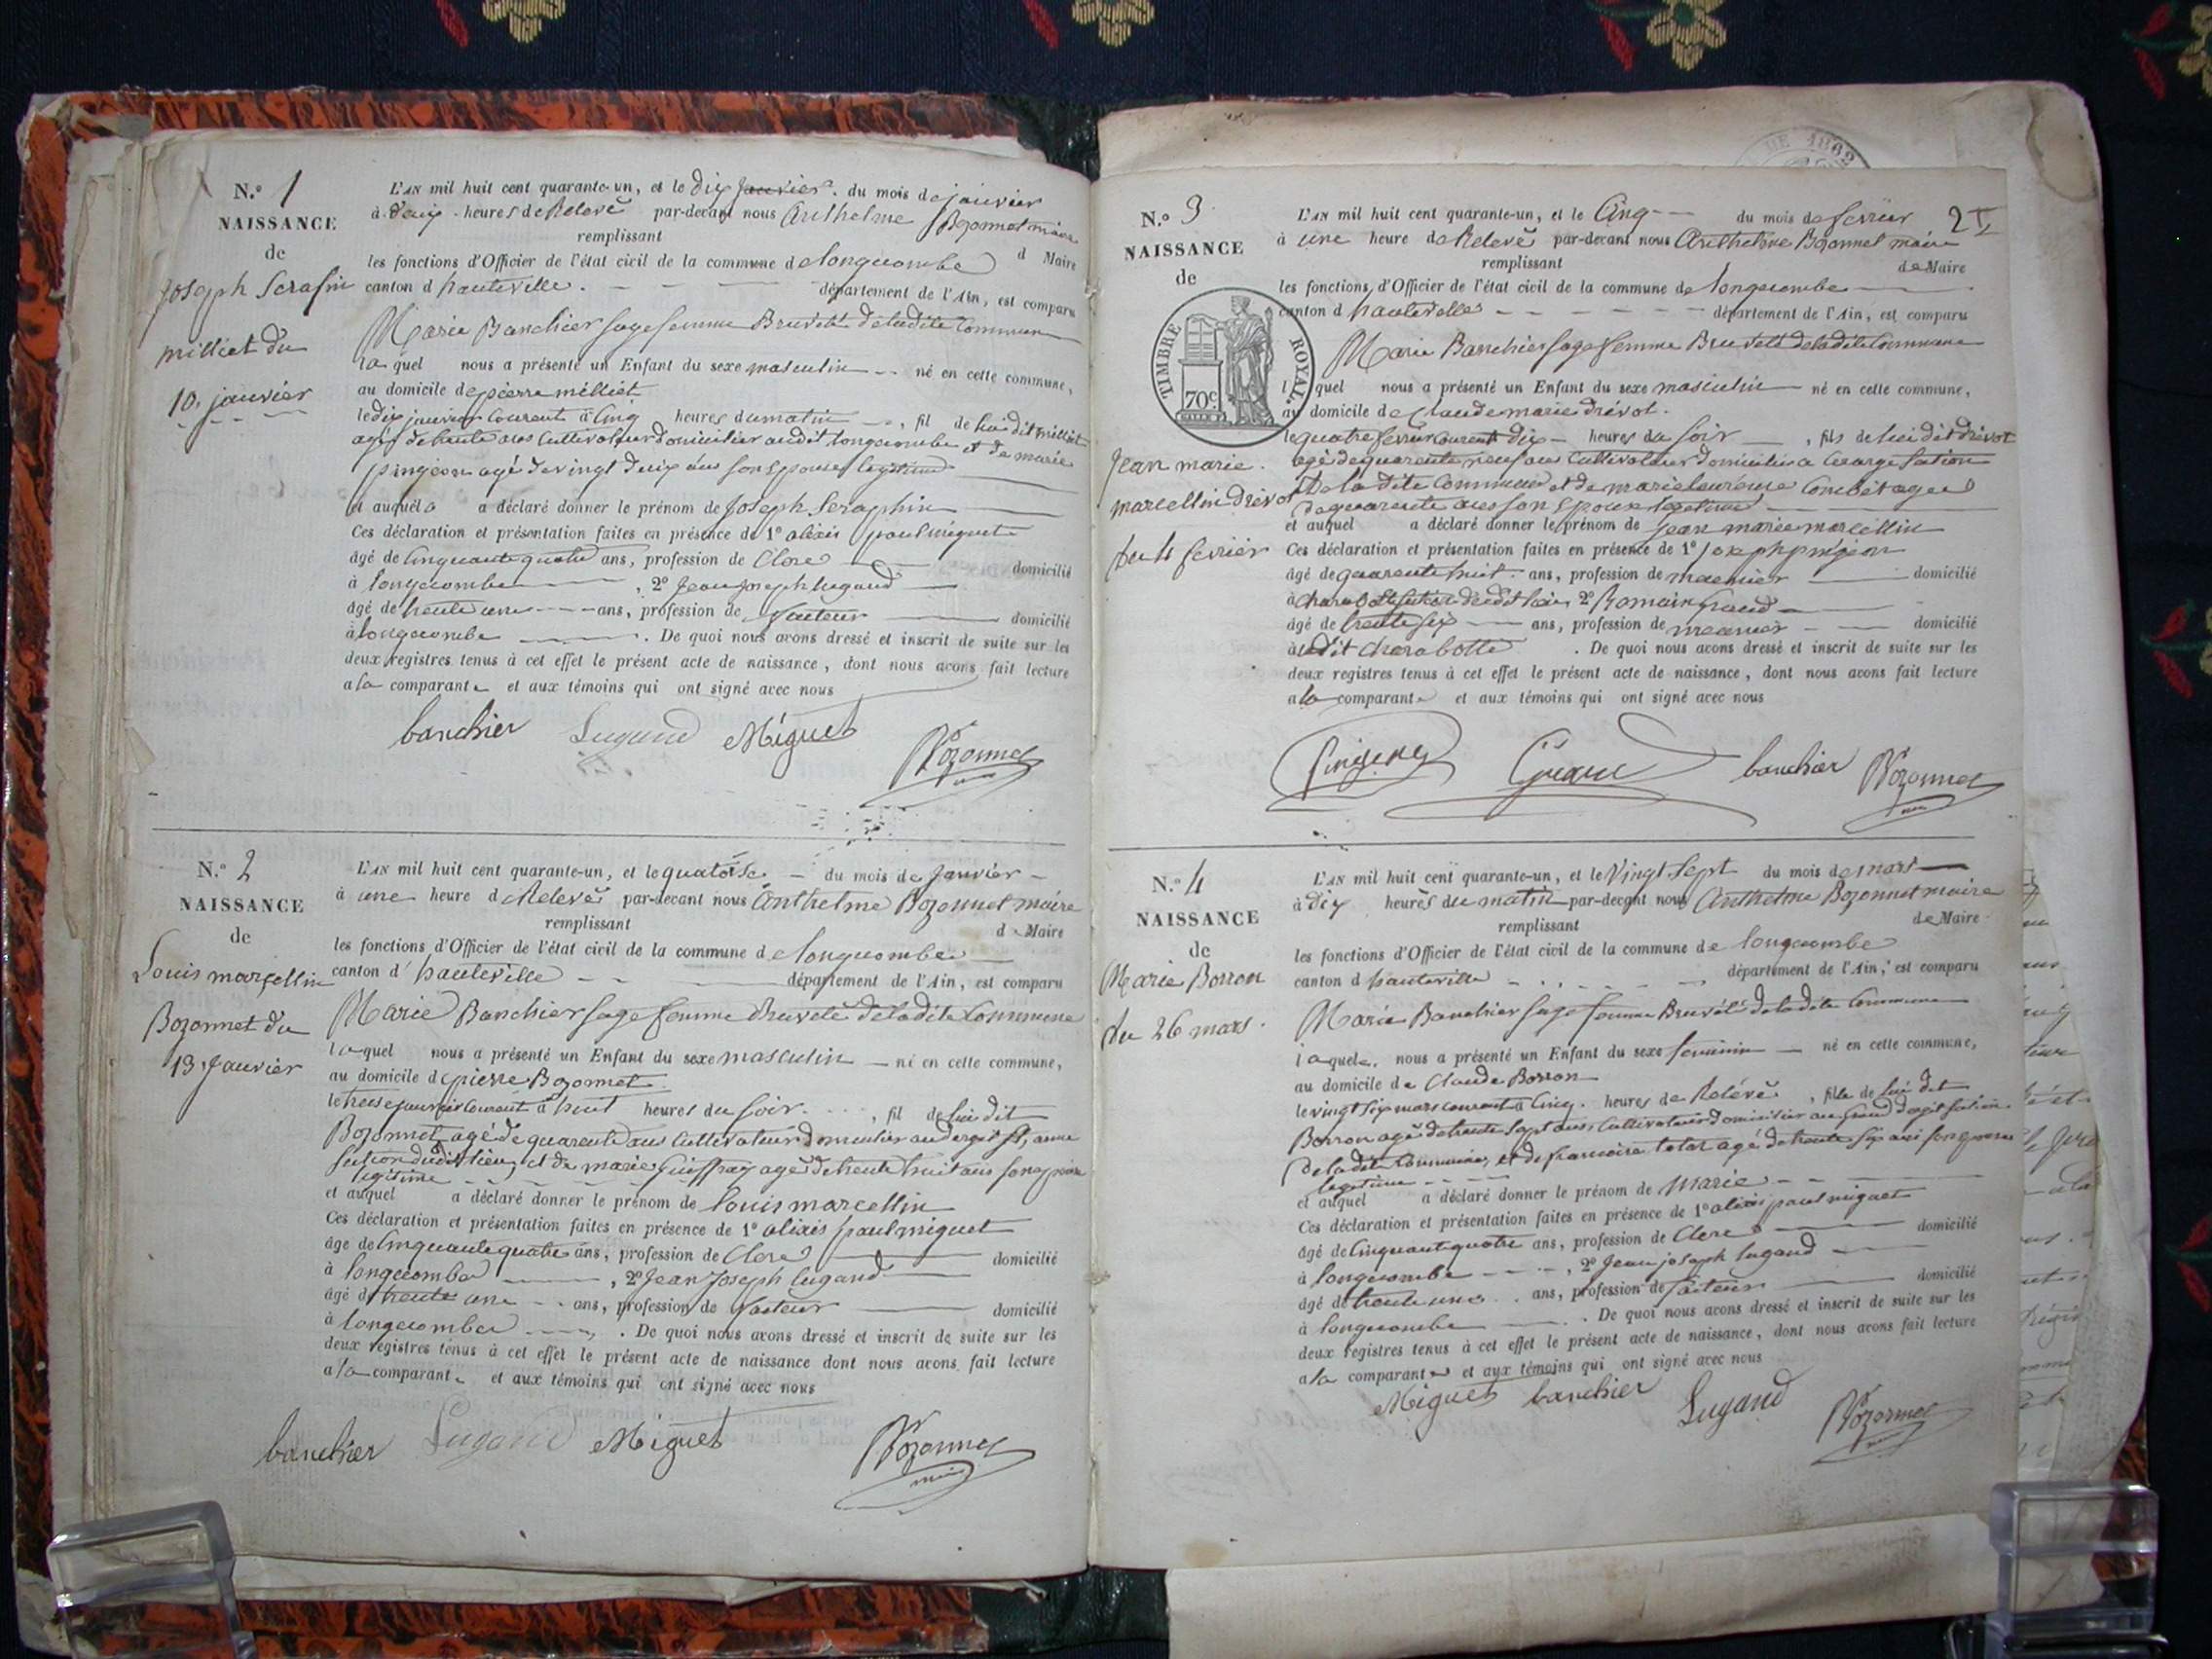 N.º 1
NAISSANCE
de
Joseph Serafin
milliet du
10. janvier
L'AN mil huit cent quarante-un, et le dix janvier. du mois de janvier
à deux heures de Relevé par-devant nous Anthelme Bozonnet maire
remplissant d Maire
les fonctions d'Officier de l'état civil de la commune de longecombe
canton d hauteville. département de l'Ain, est comparu
Marie Banchier sage femme Bruveté de ladite Commune
laquel nous a présenté un Enfant du sexe masculin né en cette commune,
au domicile de pierre milliet
le dix janvier courant à Cinq heures du matin, fil de lui dit milliet
agé de trente ans Cultivateur domicilier audit longecombe et de marie
pingeon agé de vingt deux ans son epouse legitime
et auquel a déclaré donner le prénom de Joseph Seraphin
Ces déclaration et présentation faites en présence de 1º alexis paul miguet
âgé de Cinquante quatre ans, profession de Clerc domicilié
à longecombe, 2º Jean Joseph lugand
âgé de trente une ans, profession de facteur domicilié
à longecombe. De quoi nous avons dressé et inscrit de suite sur les
deux registres tenus à cet effet le présent acte de naissance, dont nous avons fait lecture
a la comparante et aux témoins qui ont signé avec nous
banchier Lugand Miguet Bozonnet
N.º 2
NAISSANCE
de
Louis marcellin
Bozonnet du
13. Janvier
L'AN mil huit cent quarante-un, et le quatorse du mois de Janvier
à une heure d Relevé par-devant nous Anthelme Bozonnet maire
remplissant d Maire
les fonctions d'Officier de l'état civil de la commune de longecombe
canton d' hauteville département de l'Ain, est comparu
Marie Banchier sage femme Bruveté de ladite Commune
laquel nous a présenté un Enfant du sexe masculin né en cette commune,
au domicile de pierre Bozonnet
le treise janvier courant à huit heures du soir, fil de lui dit
Bozonnet agé de quarente ans Cultivateur domicilier
section dudit lieu, et de marie Guiffray agé de trente huit ans son epouse
legitime
et auquel a déclaré donner le prénom de louis marcellin
Ces déclaration et présentation faites en présence de 1º alexis paul miguet
âgé de Cinquante quatre ans, profession de Clerc domicilié
à longecombe, 2º Jean Joseph lugand
âgé de trente une ans, profession de facteur domicilié
à longecombe. De quoi nous avons dressé et inscrit de suite sur les
deux registres tenus à cet effet le présent acte de naissance dont nous avons fait lecture
a la comparante et aux témoins qui ont signé avec nous
banchier Lugand Miguet Bozonnet maire
DE 1862
2
N.º 3
NAISSANCE
de
TIMBRE ROYAL
70 c.
Jean marie
marcellin drévot
du 4 fevrier
L'AN mil huit cent quarante-un, et le Cinq du mois de fevrier
à une heure de Relevé par-devant nous Anthelme Bozonnet maire
remplissant de Maire
les fonctions d'Officier de l'état civil de la commune de longecombe
canton d hauteville département de l'Ain, est comparu
Marie Banchier sage femme Bruveté de ladite Commune
l quel nous a présenté un Enfant du sexe masculin né en cette commune,
au domicile de Claude marie drévot.
le quatre fevrier courent dix heures du soir, fils de lui dit drévot
agé de quarente neuf ans Cultivateur domicilier a
De la dite Commune et de marie Combet agee
de quarente ans son epouse legitime
et auquel a déclaré donner le prénom de Jean marie marcellin
Ces déclaration et présentation faites en présence de 1º Joseph pingeon
âgé de quarente huit ans, profession de meunier domicilié
à charabotte section dudit lieu, 2º Romain Grand
âgé de trente six ans, profession de meunier domicilié
audit charabotte. De quoi nous avons dressé et inscrit de suite sur les
deux registres tenus à cet effet le présent acte de naissance, dont nous avons fait lecture
a la comparante et aux témoins qui ont signé avec nous
Pingeon Grand banchier Bozonnet
N.º 4
NAISSANCE
de
Marie Borron
du 26 mars
L'AN mil huit cent quarante-un, et le Vingt Sept du mois de mars
à dix heures du matin par-devant nous Anthelme Bozonnet maire
remplissant de Maire
les fonctions d'Officier de l'état civil de la commune de longecombe
canton d hauteville département de l'Ain, est comparu
Marie Banchier sage femme Bruveté de ladite Commune
laquele nous a présenté un Enfant du sexe feminin né en cette commune,
au domicile de Claude Borron
le vingt six mars courant à Cinq heures de Relévé, fille de lui dit
Borron agé de trente sept ans, Cultivateur domicilier section
De ladite Commune, et de francoise agé de trente six ans son epouse
legitime
et auquel a déclaré donner le prénom de Marie
Ces déclaration et présentation faites en présence de 1º alexis paul miguet
âgé de Cinquante quatre ans, profession de Clerc domicilié
à longecombe, 2º Jean joseph lugand
âgé de trente une ans, profession de facteur domicilié
à longecombe. De quoi nous avons dressé et inscrit de suite sur les
deux registres tenus à cet effet le présent acte de naissance, dont nous avons fait lecture
a la comparante et aux témoins qui ont signé avec nous
Miguet banchier Lugand Bozonnet